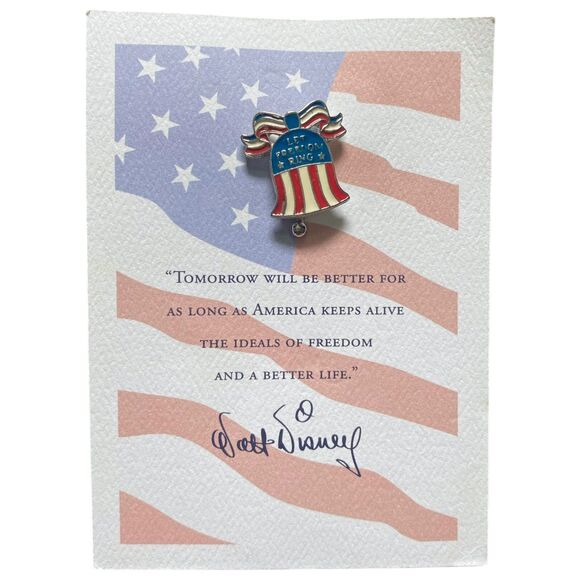 LET
FREEDOM
RING
“TOMORROW WILL BE BETTER FOR
AS LONG AS AMERICA KEEPS ALIVE
THE IDEALS OF FREEDOM
AND A BETTER LIFE.”
Walt Disney